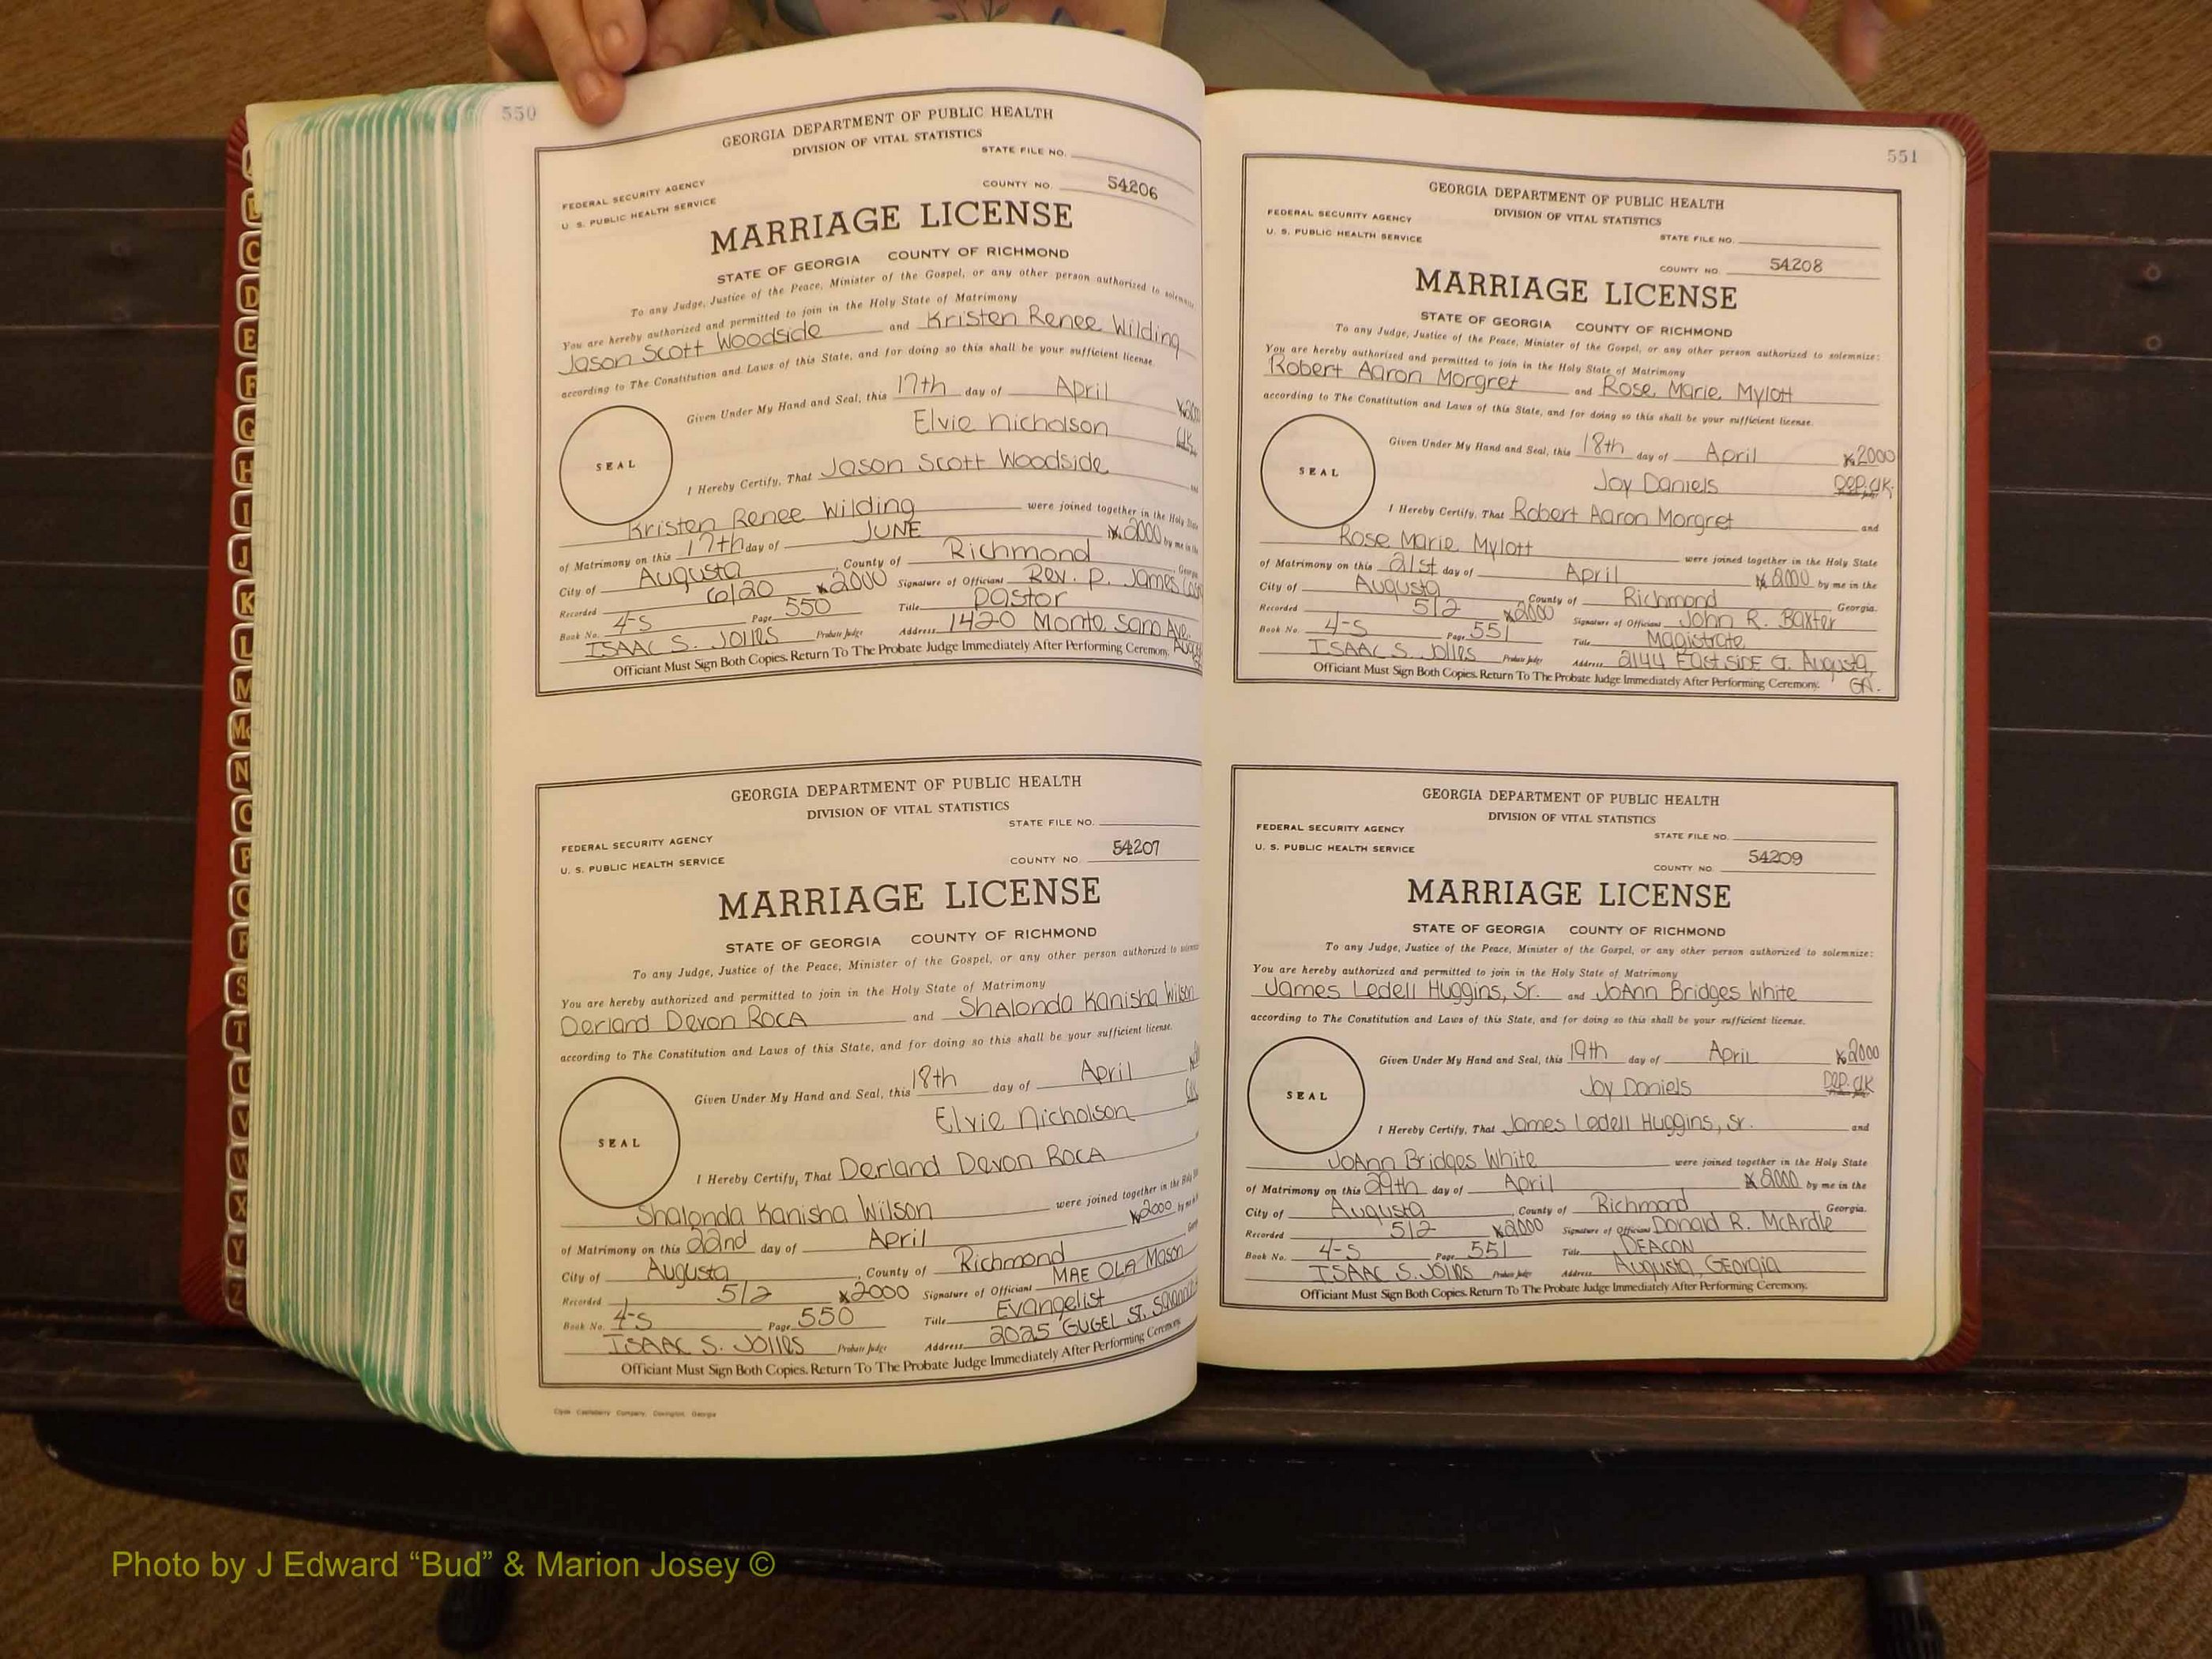 550
GEORGIA DEPARTMENT OF PUBLIC HEALTH
DIVISION OF VITAL STATISTICS
STATE FILE NO.
FEDERAL SECURITY AGENCY
COUNTY NO. 54206
U. S. PUBLIC HEALTH SERVICE
MARRIAGE LICENSE
STATE OF GEORGIA COUNTY OF RICHMOND
To any Judge, Justice of the Peace, Minister of the Gospel, or any other person authorized to
You are hereby authorized and permitted to join in the Holy State of Matrimony
Jason Scott Woodside and Kristen Renee Wilding
according to The Constitution and Laws of this State, and for doing so this shall be your sufficient license.
Given Under My Hand and Seal, this 17th day of April
Elvie Nicholson
SEAL
I Hereby Certify, That Jason Scott Woodside
Kristen Renee Wilding were joined together in the Holy
of Matrimony on this 17th day of JUNE 2000 by me in the
City of Augusta, County of Richmond
Recorded 6/20 2000 Signature of Officiant Rev. P. James
Book No. 4-S Page 550 Title Pastor
ISAAC S. Jolles Probate Judge Address 1420 Monte Sano Ave.
Officiant Must Sign Both Copies. Return To The Probate Judge Immediately After Performing Ceremony.
GEORGIA DEPARTMENT OF PUBLIC HEALTH
DIVISION OF VITAL STATISTICS
STATE FILE NO.
FEDERAL SECURITY AGENCY
COUNTY NO. 54207
U. S. PUBLIC HEALTH SERVICE
MARRIAGE LICENSE
STATE OF GEORGIA COUNTY OF RICHMOND
To any Judge, Justice of the Peace, Minister of the Gospel, or any other person authorized to
You are hereby authorized and permitted to join in the Holy State of Matrimony
Derland Devon ROCA and ShAlonda Kanisha Wilson
according to The Constitution and Laws of this State, and for doing so this shall be your sufficient license.
Given Under My Hand and Seal, this 18th day of April
Elvie Nicholson
SEAL
I Hereby Certify, That Derland Devon ROCA
Shalonda Kanisha Wilson were joined together in the Holy
of Matrimony on this 22nd day of April 2000 by me
City of Augusta, County of Richmond
Recorded 5/2 2000 Signature of Officiant MAE OLA Mason
Book No. 4-S Page 550 Title Evangelist
ISAAC S. Jolles Probate Judge Address 2025 GUGEL ST.
Officiant Must Sign Both Copies. Return To The Probate Judge Immediately After Performing Ceremony.
Clyde Castleberry Company, Covington, Georgia
551
GEORGIA DEPARTMENT OF PUBLIC HEALTH
DIVISION OF VITAL STATISTICS
FEDERAL SECURITY AGENCY
U. S. PUBLIC HEALTH SERVICE
STATE FILE NO.
COUNTY NO. 54208
MARRIAGE LICENSE
STATE OF GEORGIA COUNTY OF RICHMOND
To any Judge, Justice of the Peace, Minister of the Gospel, or any other person authorized to solemnize:
You are hereby authorized and permitted to join in the Holy State of Matrimony
Robert Aaron Morgret and Rose Marie Mylott
according to The Constitution and Laws of this State, and for doing so this shall be your sufficient license.
Given Under My Hand and Seal, this 18th day of April 2000
Joy Daniels Dep. Clk.
SEAL
I Hereby Certify, That Robert Aaron Morgret and
Rose Marie Mylott were joined together in the Holy State
of Matrimony on this 21st day of April 2000 by me in the
City of Augusta, County of Richmond Georgia.
Recorded 5/2 2000 Signature of Officiant John R. Baxter
Book No. 4-S Page 551 Title Magistrate
ISAAC S. Jolles Probate Judge Address 2144 EastSIDE Augusta, GA.
Officiant Must Sign Both Copies. Return To The Probate Judge Immediately After Performing Ceremony.
GEORGIA DEPARTMENT OF PUBLIC HEALTH
DIVISION OF VITAL STATISTICS
FEDERAL SECURITY AGENCY
STATE FILE NO.
U. S. PUBLIC HEALTH SERVICE
COUNTY NO. 54209
MARRIAGE LICENSE
STATE OF GEORGIA COUNTY OF RICHMOND
To any Judge, Justice of the Peace, Minister of the Gospel, or any other person authorized to solemnize:
You are hereby authorized and permitted to join in the Holy State of Matrimony
James Ledell Huggins, Sr. and JoAnn Bridges White
according to The Constitution and Laws of this State, and for doing so this shall be your sufficient license.
Given Under My Hand and Seal, this 19th day of April 2000
Joy Daniels Dep. Clk
SEAL
I Hereby Certify, That James Ledell Huggins, Sr. and
JoAnn Bridges White were joined together in the Holy State
of Matrimony on this 29th day of April 2000 by me in the
City of Augusta, County of Richmond Georgia.
Recorded 5/2 2000 Signature of Officiant Donald R. McArdle
Book No. 4-S Page 551 Title DEACON
ISAAC S. Jolles Probate Judge Address Augusta, Georgia
Officiant Must Sign Both Copies. Return To The Probate Judge Immediately After Performing Ceremony.
C
D
E
F
G
H
I
J
K
L
M
Mc
N
O
P
Q
R
S
T
U
V
W
X
Y
Z
Photo by J Edward “Bud” & Marion Josey ©